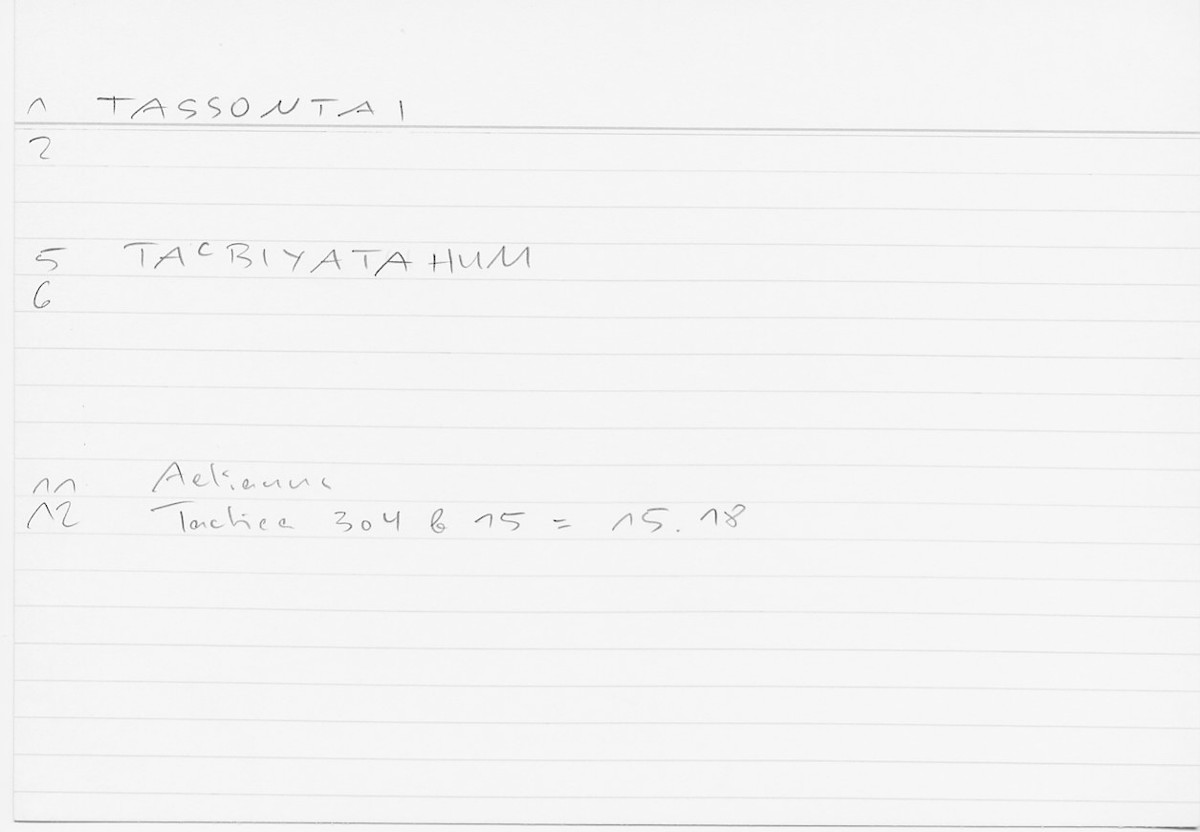 1 TASSONTAI
2
5 TAᶜBIYATAHUM
6
11 Aelianus
12 Tactica 304 b 15 = 15.18